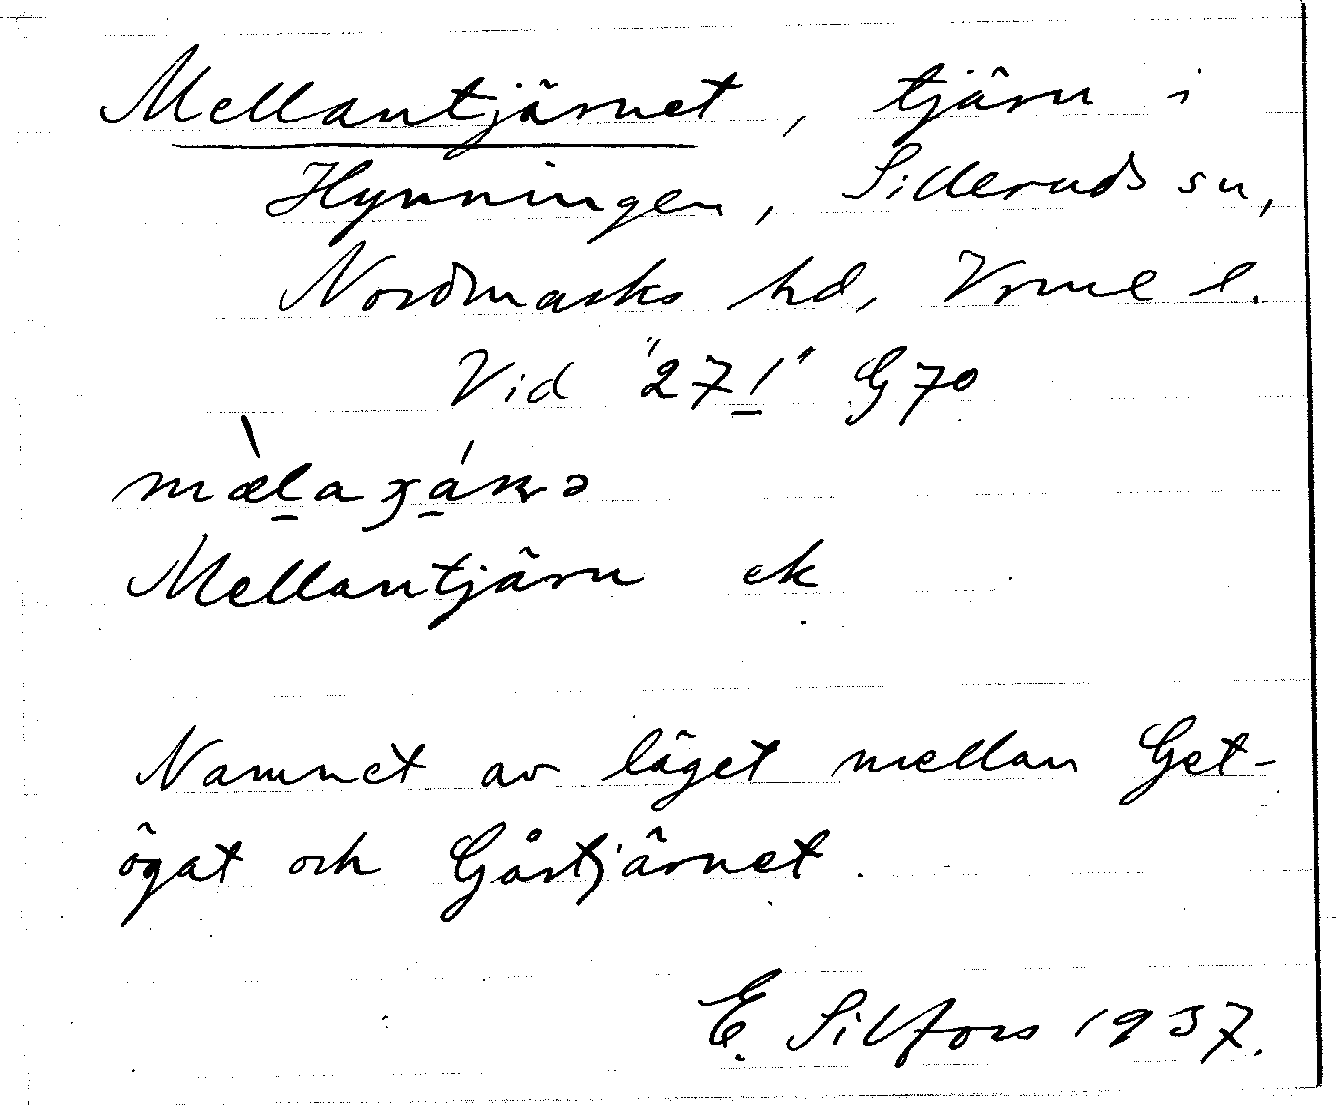 Mellantjärnet, tjärn i
Hynningen, Silleruds sn,
Nordmarks hd, Vrml l.
Vid "271" G70
mæ̀laɟánə
Mellantjärn ek
Namnet av läget mellan Get-
ögat och Gårtjärnet.
E. Silfors 1937.